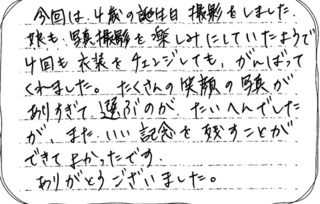 今回は、4歳の誕生日撮影をしました。
娘も写真撮影を楽しみにしていたようで
4回も衣装をチェンジしても、がんばって
くれました。たくさんの笑顔の写真が
ありすぎて選ぶのが、たいへんでした
が、また、いい記念を残すことが
できてよかったです。
ありがとうございました。